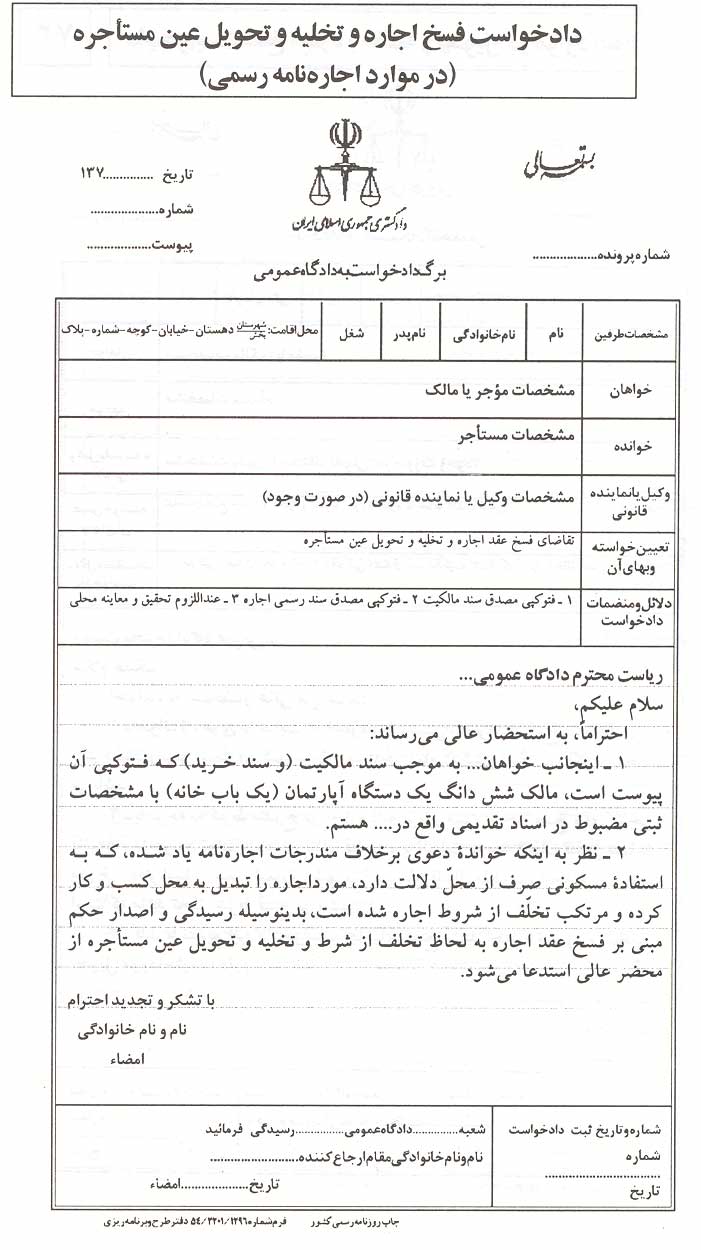 دادخواست فسخ اجاره و تخلیه و تحویل عین مستأجره
(در موارد اجاره‌نامه رسمی)
بسمه تعالی
دادگستری جمهوری اسلامی ایران
تاریخ ............... ۱۳۷
شماره....................
پیوست...................
شماره پرونده...................
برگ دادخواست به دادگاه عمومی
مشخصات طرفین
نام
نام خانوادگی
نام پدر
شغل
محل اقامت: شهرستان بخش دهستان-خیابان-کوجه-شماره-بلاک
خواهان
مشخصات مؤجر یا مالک
خوانده
مشخصات مستأجر
وکیل یا نماینده قانونی
مشخصات وکیل یا نماینده قانونی (در صورت وجود)
تعیین خواسته وبهای آن
تقاضای فسخ عقد اجاره و تخلیه و تحویل عین مستأجره
دلائل و منضمات دادخواست
۱ ـ فتوکپی مصدق سند مالکیت ۲ ـ فتوکپی مصدق سند رسمی اجاره ۳ ـ عنداللزوم تحقیق و معاینه محلی
ریاست محترم دادگاه عمومی...
سلام علیکم،
احتراماً، به استحضار عالی می‌رساند:
۱ ـ اینجانب خواهان... به موجب سند مالکیت (و سند خرید) که فتوکپی آن
پیوست است، مالک شش دانگ یک دستگاه آپارتمان (یک باب خانه) با مشخصات
ثبتی مضبوط در اسناد تقدیمی واقع در.... هستم.
۲ ـ نظر به اینکه خواندۀ دعوی برخلاف مندرجات اجاره‌نامه یاد شده، که به
استفادۀ مسکونی صرف از محلّ دلالت دارد، مورداجاره را تبدیل به محل کسب و کار
کرده و مرتکب تخلّف از شروط اجاره شده است، بدینوسیله رسیدگی و اصدار حکم
مبنی بر فسخ عقد اجاره به لحاظ تخلف از شرط و تخلیه و تحویل عین مستأجره از
محضر عالی استدعا می‌شود.
با تشکر و تجدید احترام
نام و نام خانوادگی
امضاء
شماره و تاریخ ثبت دادخواست
شماره
..............................
تاریخ
شعبه...............دادگاه عمومی...............رسیدگی فرمائید
نام و نام خانوادگی مقام ارجاع کننده.........................
تاریخ....................امضاء
چاپ روزنامه رسمی کشور فرم شماره ۵۴/۳۲۰۱/۱۲۹۶ دفتر طرح و برنامه ریزی